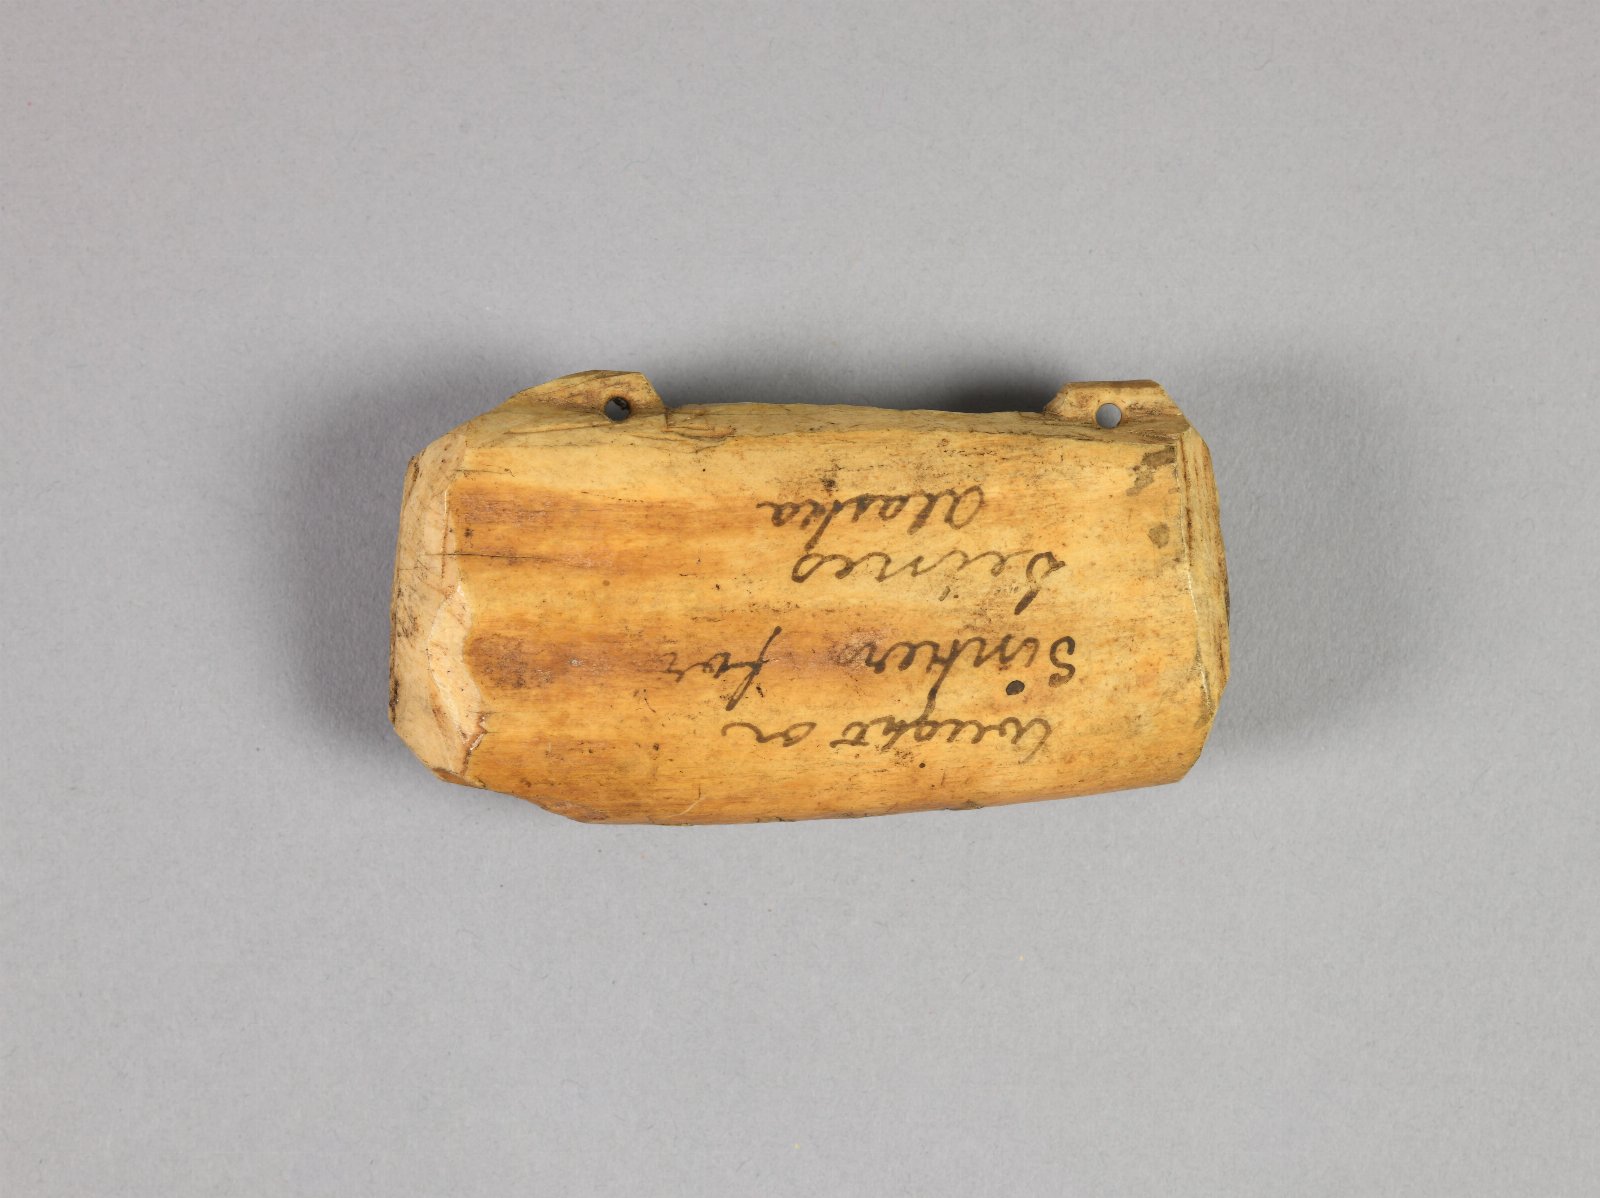 Weight or
Sinker for
Seines
Alaska